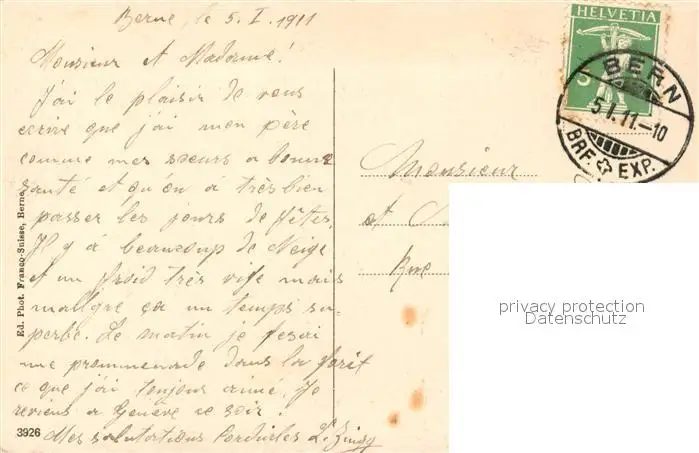 Berne, le 5. I. 1911
Monsieur et Madame!
J'ai le plaisir de vous
ecrire que j'ai mon père
comme mes soeurs a bonne
santé et qu'on a très bien
passer les jours de fêtes.
Il y â beaucoup de Neige
et un froid très vife mais
malgré ça un temps su-
perbe. Le matin je ferai
une promenade dans la forêt
ce que j'ai toujour aimé. Je
reviens a Genève ce soir!
Mes salutations Cordiales
Ed. Phot. Franco-Suisse, Berne
3926
HELVETIA
5
BERN
5.I.11.-10
BRF. EXP.
Monsieur
et
Rue
privacy protection
Datenschutz